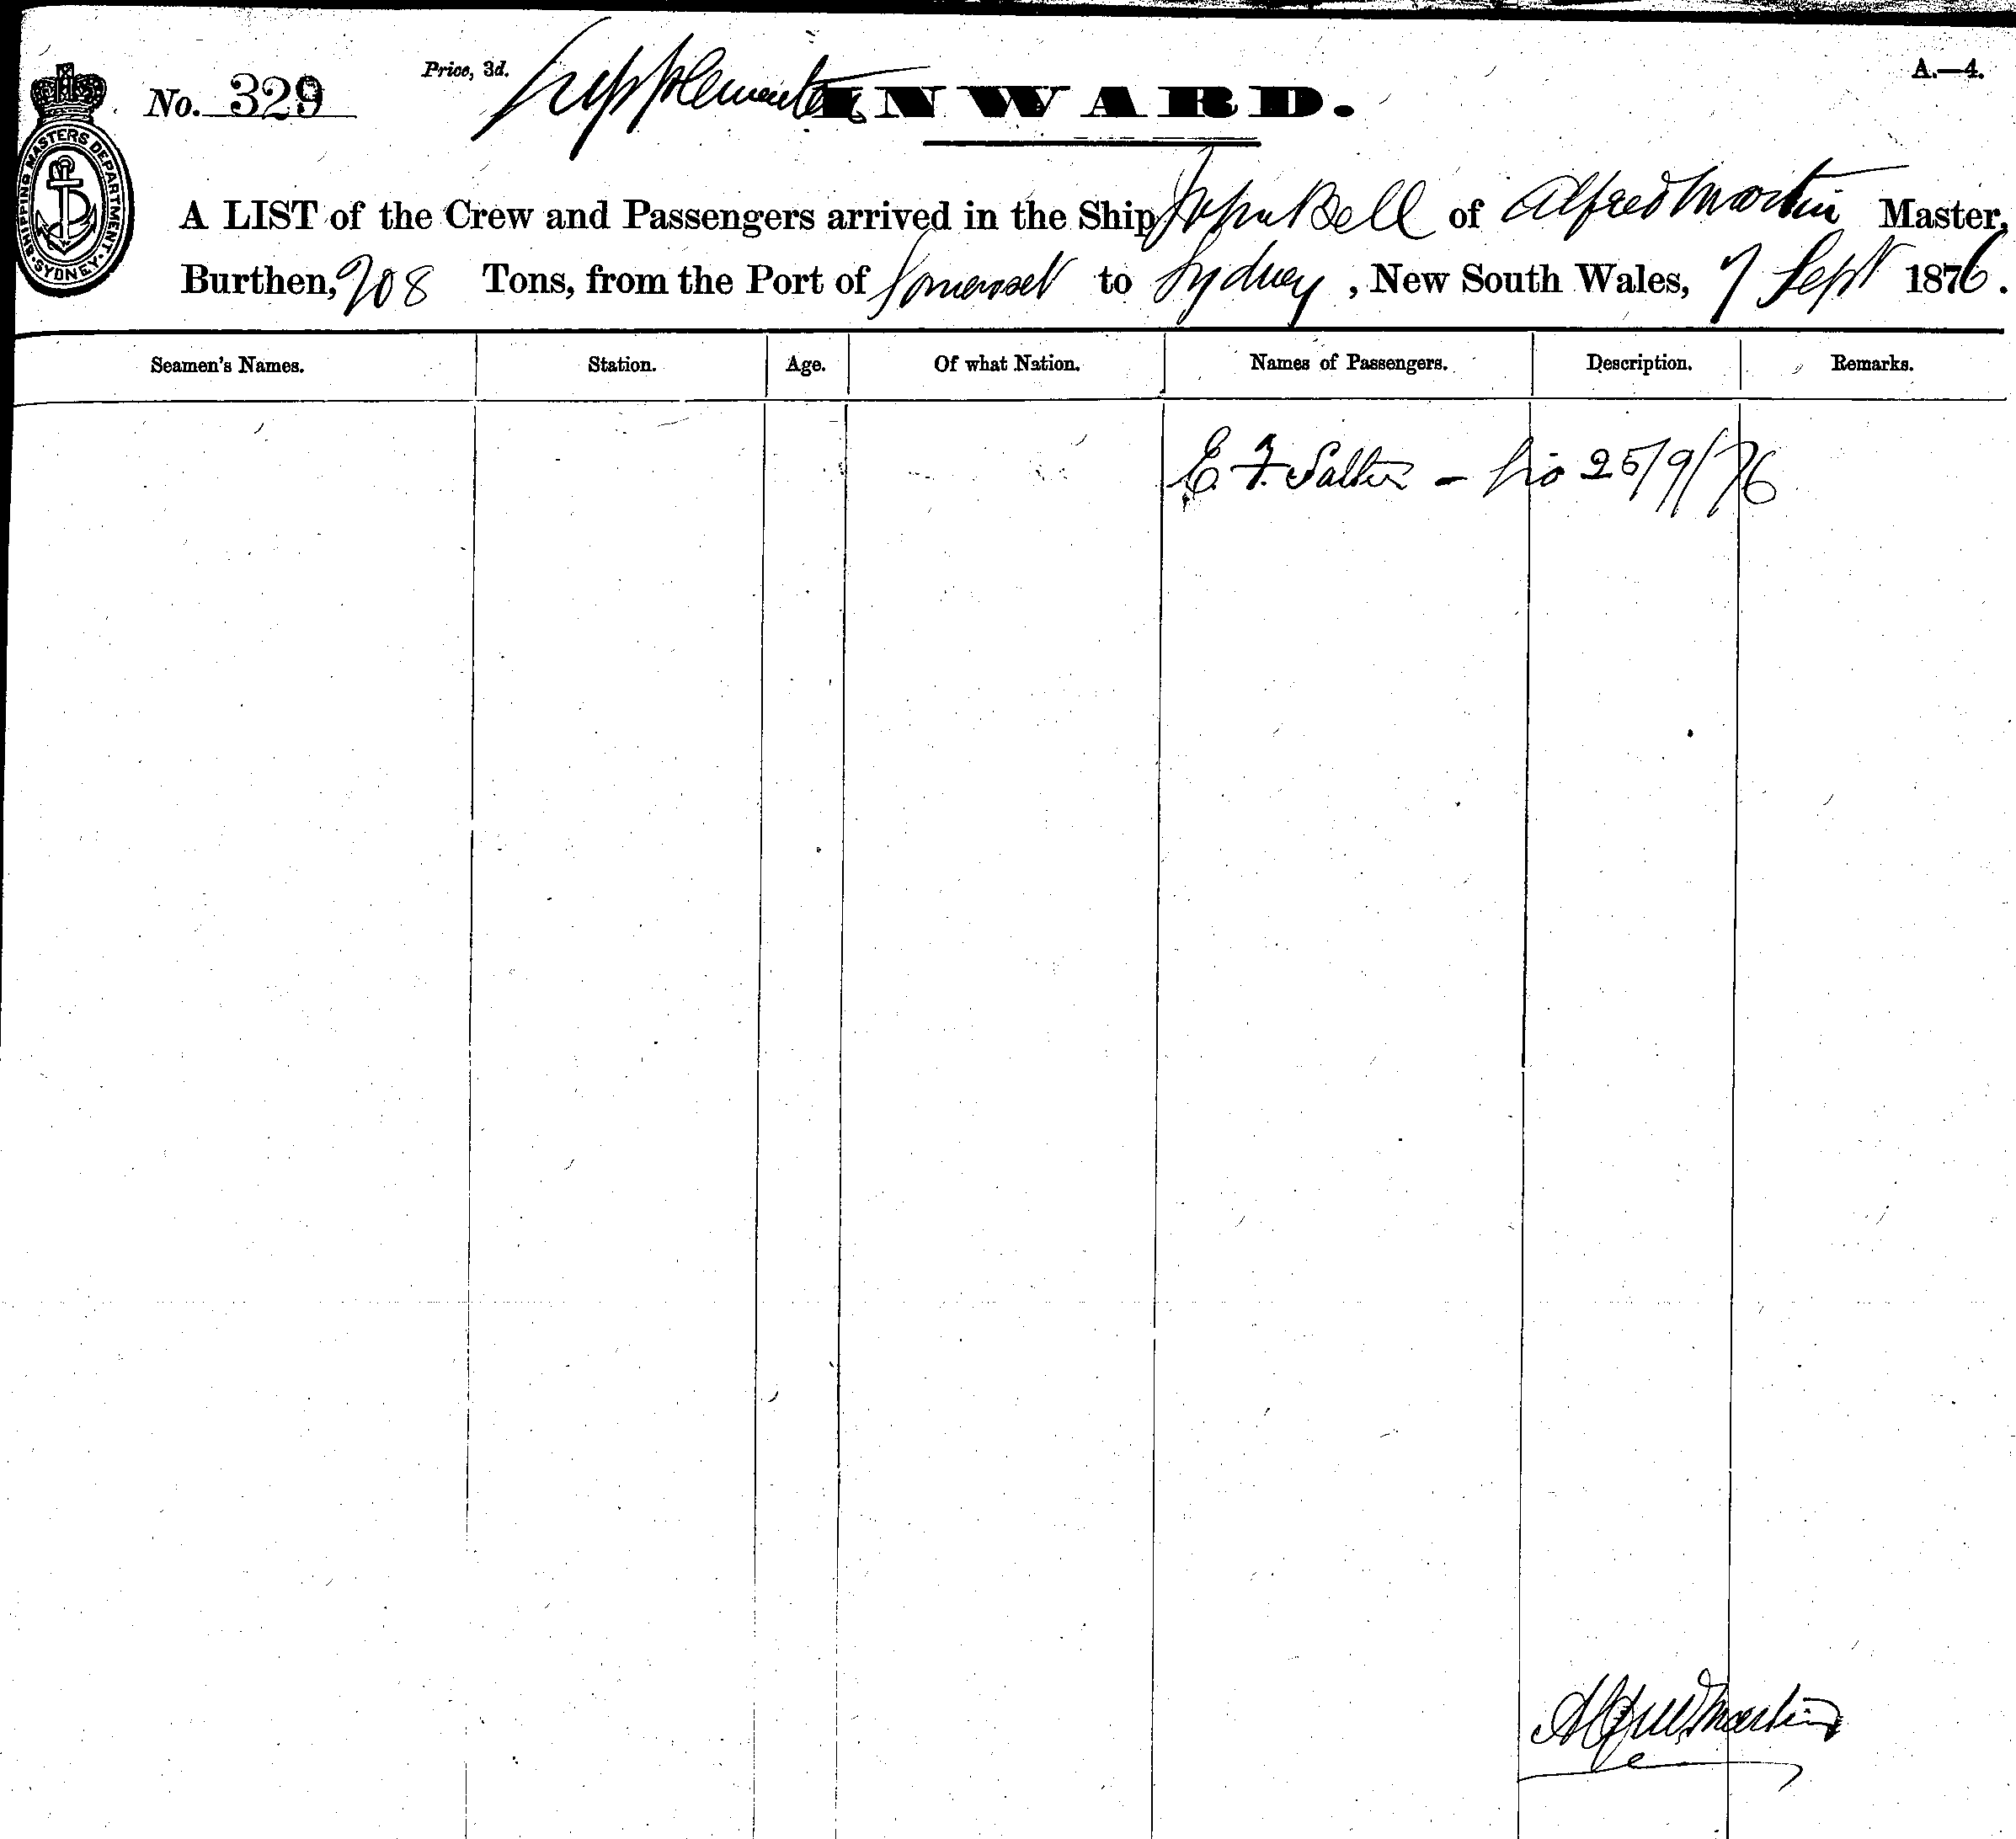 Price, 3d.
A.—4.
No. 329
Supplementary
INWARD.
SHIPPING MASTERS DEPARTMENT
SYDNEY
A LIST of the Crew and Passengers arrived in the Ship John Bell of Alfred Martin Master,
Burthen, 908 Tons, from the Port of Somerset to Sydney, New South Wales, 7 Sept 1876.
Seamen's Names. Station. Age. Of what Nation. Names of Passengers. Description. Remarks.
E. F. Salter - 25/9/76
Alfred Martin